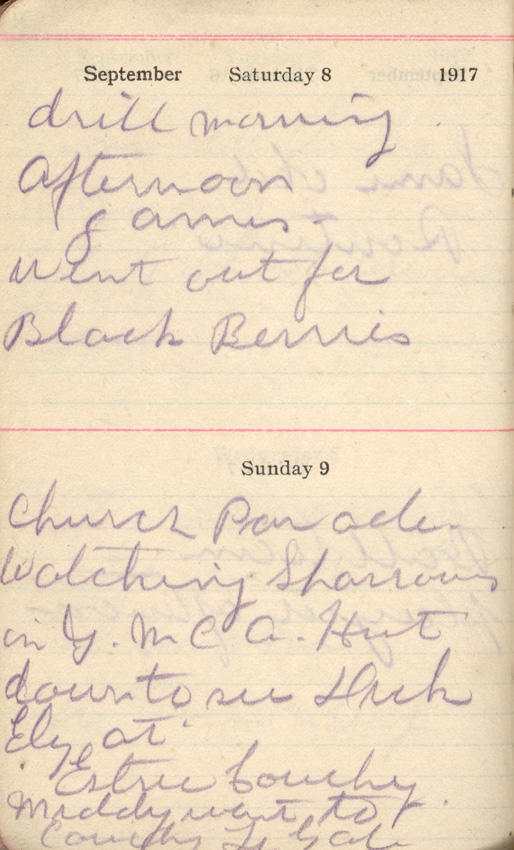 September Saturday 8 1917
drill morning.
Afternoon
games.
Went out for
Black Berries
Sunday 9
Church Parade
Watching Sparrows
in Y. M C A. Hut
down to see Dick
Ely at
Estree Couchy.
Middy went to
Couchy